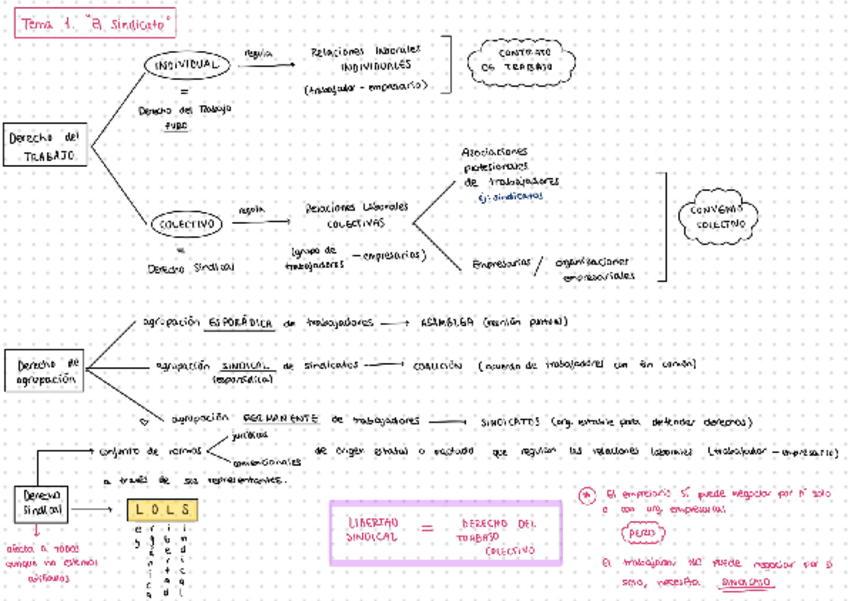 Tema 1. "El Sindicato"
INDIVIDUAL
regula
Relaciones laborales
INDIVIDUALES
(trabajador - empresario)
CONTRATO
DE TRABAJO
=
Derecho del Trabajo
PURO
Derecho del
TRABAJO
COLECTIVO
regula
Relaciones Laborales
COLECTIVAS
(grupo de
trabajadores - empresarios)
=
Derecho Sindical
Asociaciones
profesionales
de trabajadores
ej: sindicatos
Empresarios / organizaciones
empresariales
CONVENIO
COLECTIVO
Derecho de
agrupación
agrupación ESPORÁDICA de trabajadores → ASAMBLEA (reunión puntual)
agrupación SINDICAL de sindicatos → COALICIÓN (acuerdo de trabajadores con fin común)
agrupación PERMANENTE de trabajadores → SINDICATOS (org. estable para defender derechos)
Derecho
Sindical
conjunto de normas
jurídicas
convencionales
de origen estatal o pactado que regulan las relaciones laborales (trabajador - empresario)
a través de sus representantes.
afecta a todos
aunque no estemos
afiliados
L O L S
Ley
Orgánica
Libertad
Sindical
LIBERTAD
SINDICAL
=
DERECHO DEL
TRABAJO
COLECTIVO
* El empresario SÍ puede negociar por sí solo
o con org. empresarial
PERO
El trabajador NO puede negociar por sí
solo, necesita SINDICATO